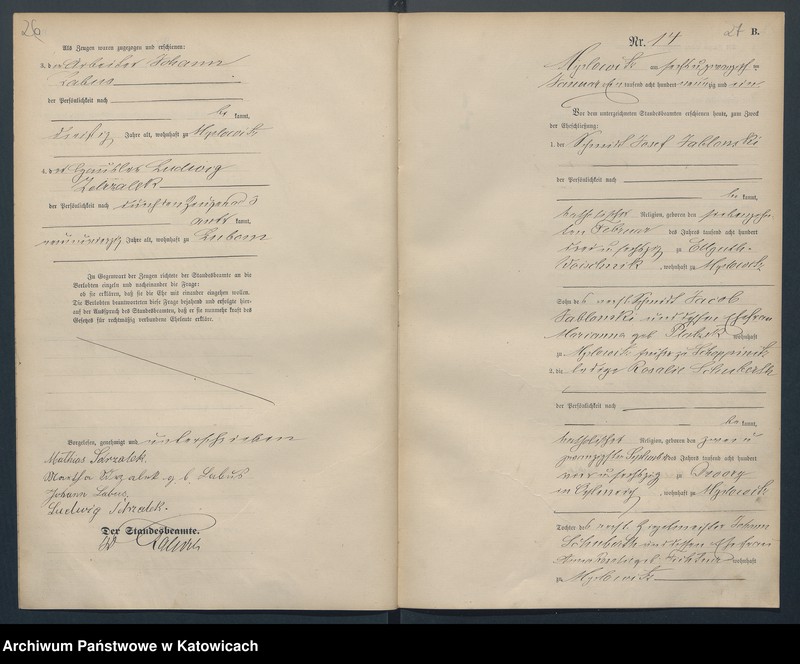 26
Als Zeugen waren zugezogen und erschienen:
3. der Arbeiter Johann
Labus
der Persönlichkeit nach
be kannt,
dreißig Jahre alt, wohnhaft zu Myslowitz
4. der Häusler Ludwig
der Persönlichkeit nach durch den Zeugen ad 3
aner kannt,
Jahre alt, wohnhaft zu
In Gegenwart der Zeugen richtete der Standesbeamte an die
Verlobten einzeln und nacheinander die Frage:
ob sie erklären, daß sie die Ehe mit einander eingehen wollen.
Die Verlobten beantworteten diese Frage bejahend und erfolgte hier-
auf der Ausspruch des Standesbeamten, daß er sie nunmehr kraft des
Gesetzes für rechtmäßig verbundene Eheleute erkläre.
Vorgelesen, genehmigt und unterschrieben
Mathias
Martha geb. Labus
Johann Labus
Ludwig
Der Standesbeamte.
27 B.
Nr. 14
Myslowitz am sechsundzwanzigsten
Januar eintausend acht hundert neunzig und ein
Vor dem unterzeichneten Standesbeamten erschienen heute, zum Zweck
der Eheschließung:
1. der Schmied Josef Jablonski
der Persönlichkeit nach
be kannt,
katholischer Religion, geboren den siebenzehn
ten Februar des Jahres tausend acht hundert
drei u sechszig zu Ellguth
, wohnhaft zu Myslowitz
Sohn des Schmied Jacob
Jablonski und dessen Ehefrau
Marianna geb. wohnhaft
zu Myslowitz früher zu Schoppinitz
2. die ledige Rosalie Schuberth
der Persönlichkeit nach
be kannt,
katholischer Religion, geboren den zwei u
zwanzigsten September des Jahres tausend acht hundert
vier u sechszig zu
, wohnhaft zu Myslowitz
Tochter des Ziegelmeister Johann
Schuberth und dessen Ehefrau
geb. wohnhaft
zu Myslowitz
Archiwum Państwowe w Katowicach